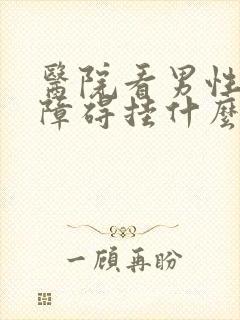 醫院看男性
障碍挂什麼
一顧再盼